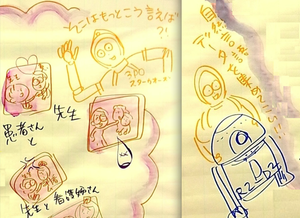 とこはもっとこう言えば
?!
3PO
スターウォーズ
患者さん
と
先生
先生と看護婦さん
自然に
データを集め
R2D2